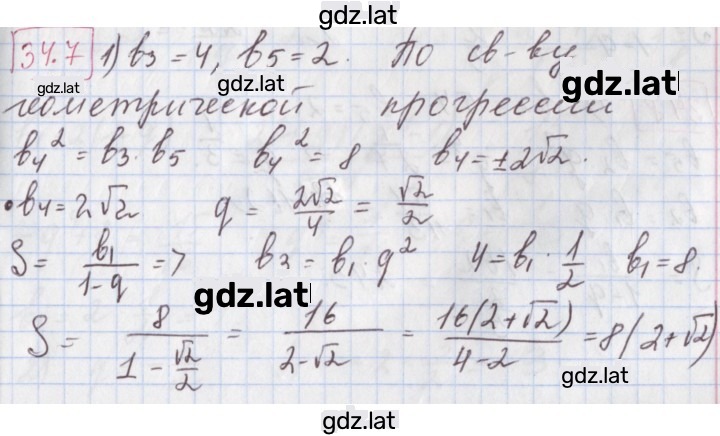 gdz.lat
34.7 1) b3 = 4, b5 = 2. По св-ву
gdz.lat gdz.lat gdz.lat
геометрической прогрессии
b4² = b3 · b5 b4² = 8 b4 = ±2√2.
• b4 = 2√2 q = 2√2/4 = √2/2
S = b1/(1-q) => b3 = b1 · q² 4 = b1 · 1/2 b1 = 8.
gdz.lat
S = 8/(1 - √2/2) = 16/(2-√2) = 16(2+√2)/(4-2) = 8(2+√2)
gdz.lat
gdz.lat